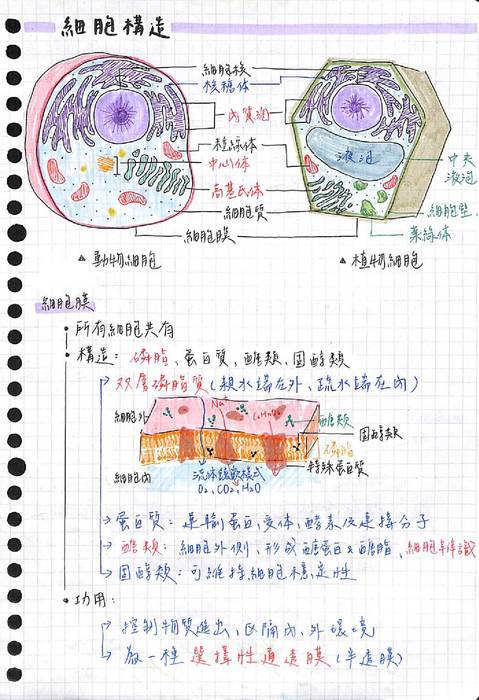 細胞構造
細胞核
核糖体
內質網
粒線体
中心体
高基氏体
細胞質
細胞膜
液泡
中央
液泡
細胞壁
葉綠体
▲ 動物細胞
▲ 植物細胞
細胞膜
• 所有細胞共有
• 構造: 磷脂、蛋白質、醣類、固醇類
→ 双層磷脂質(親水端在外、疏水端在內)
細胞外
Na⁺
醣類
固醇類
磷脂
細胞內
蛋白質
O₂、CO₂、H₂O
→ 蛋白質: 運輸蛋白、受体、酵素及連接分子
→ 醣類: 細胞外側、形成醣蛋白&醣脂、細胞辨識
→ 固醇類: 可維持細胞穩定性
• 功用:
→ 控制物質進出、區隔內、外環境
→ 為一種選擇性通透膜(半透膜)